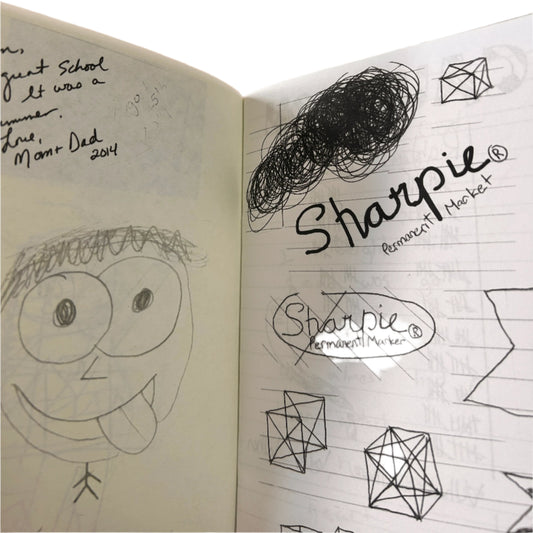 great School
It was a
ummer.
Love,
Mom + Dad
2014
Sharpie®
Permanent Market
Sharpie®
Permanent Market